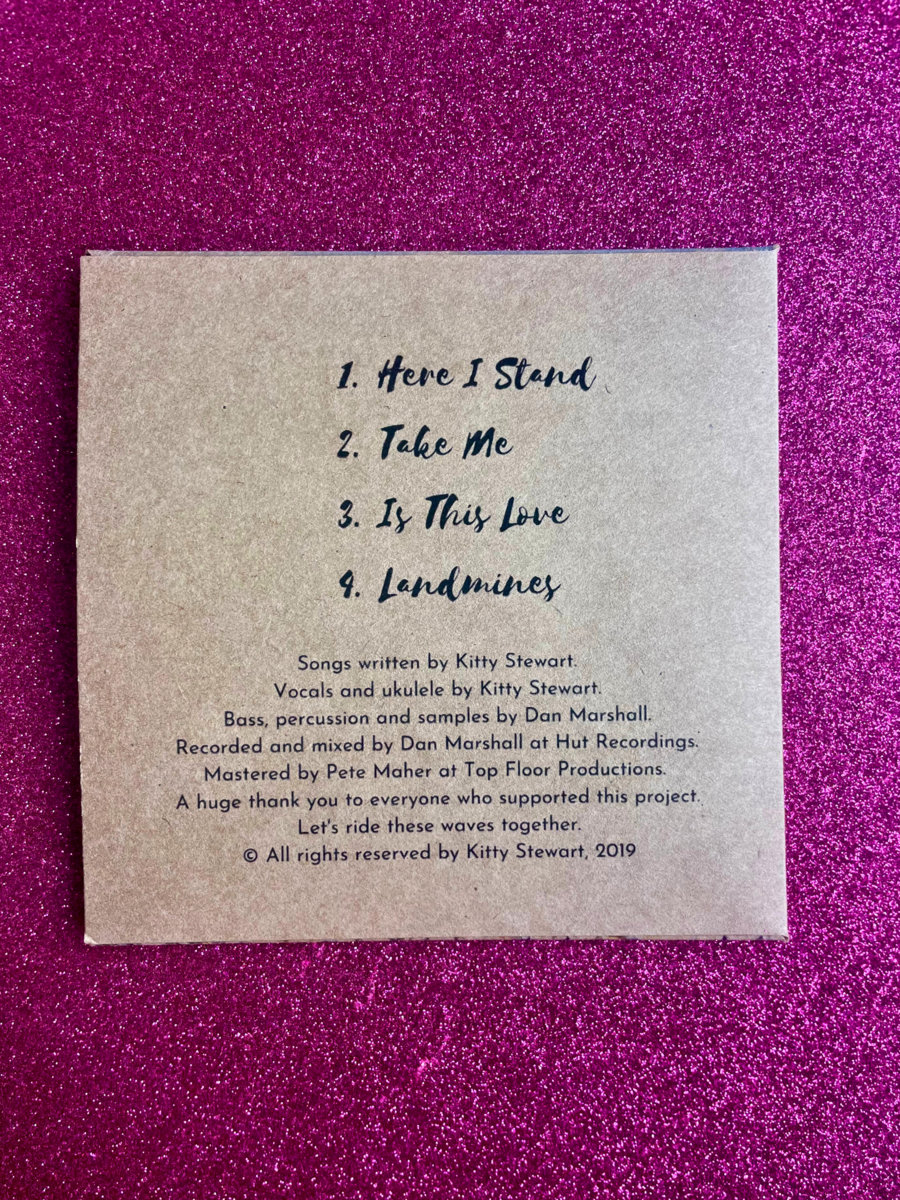 1. Here I Stand
2. Take Me
3. Is This Love
4. Landmines
Songs written by Kitty Stewart.
Vocals and ukulele by Kitty Stewart.
Bass, percussion and samples by Dan Marshall.
Recorded and mixed by Dan Marshall at Hut Recordings.
Mastered by Pete Maher at Top Floor Productions.
A huge thank you to everyone who supported this project.
Let's ride these waves together.
© All rights reserved by Kitty Stewart, 2019